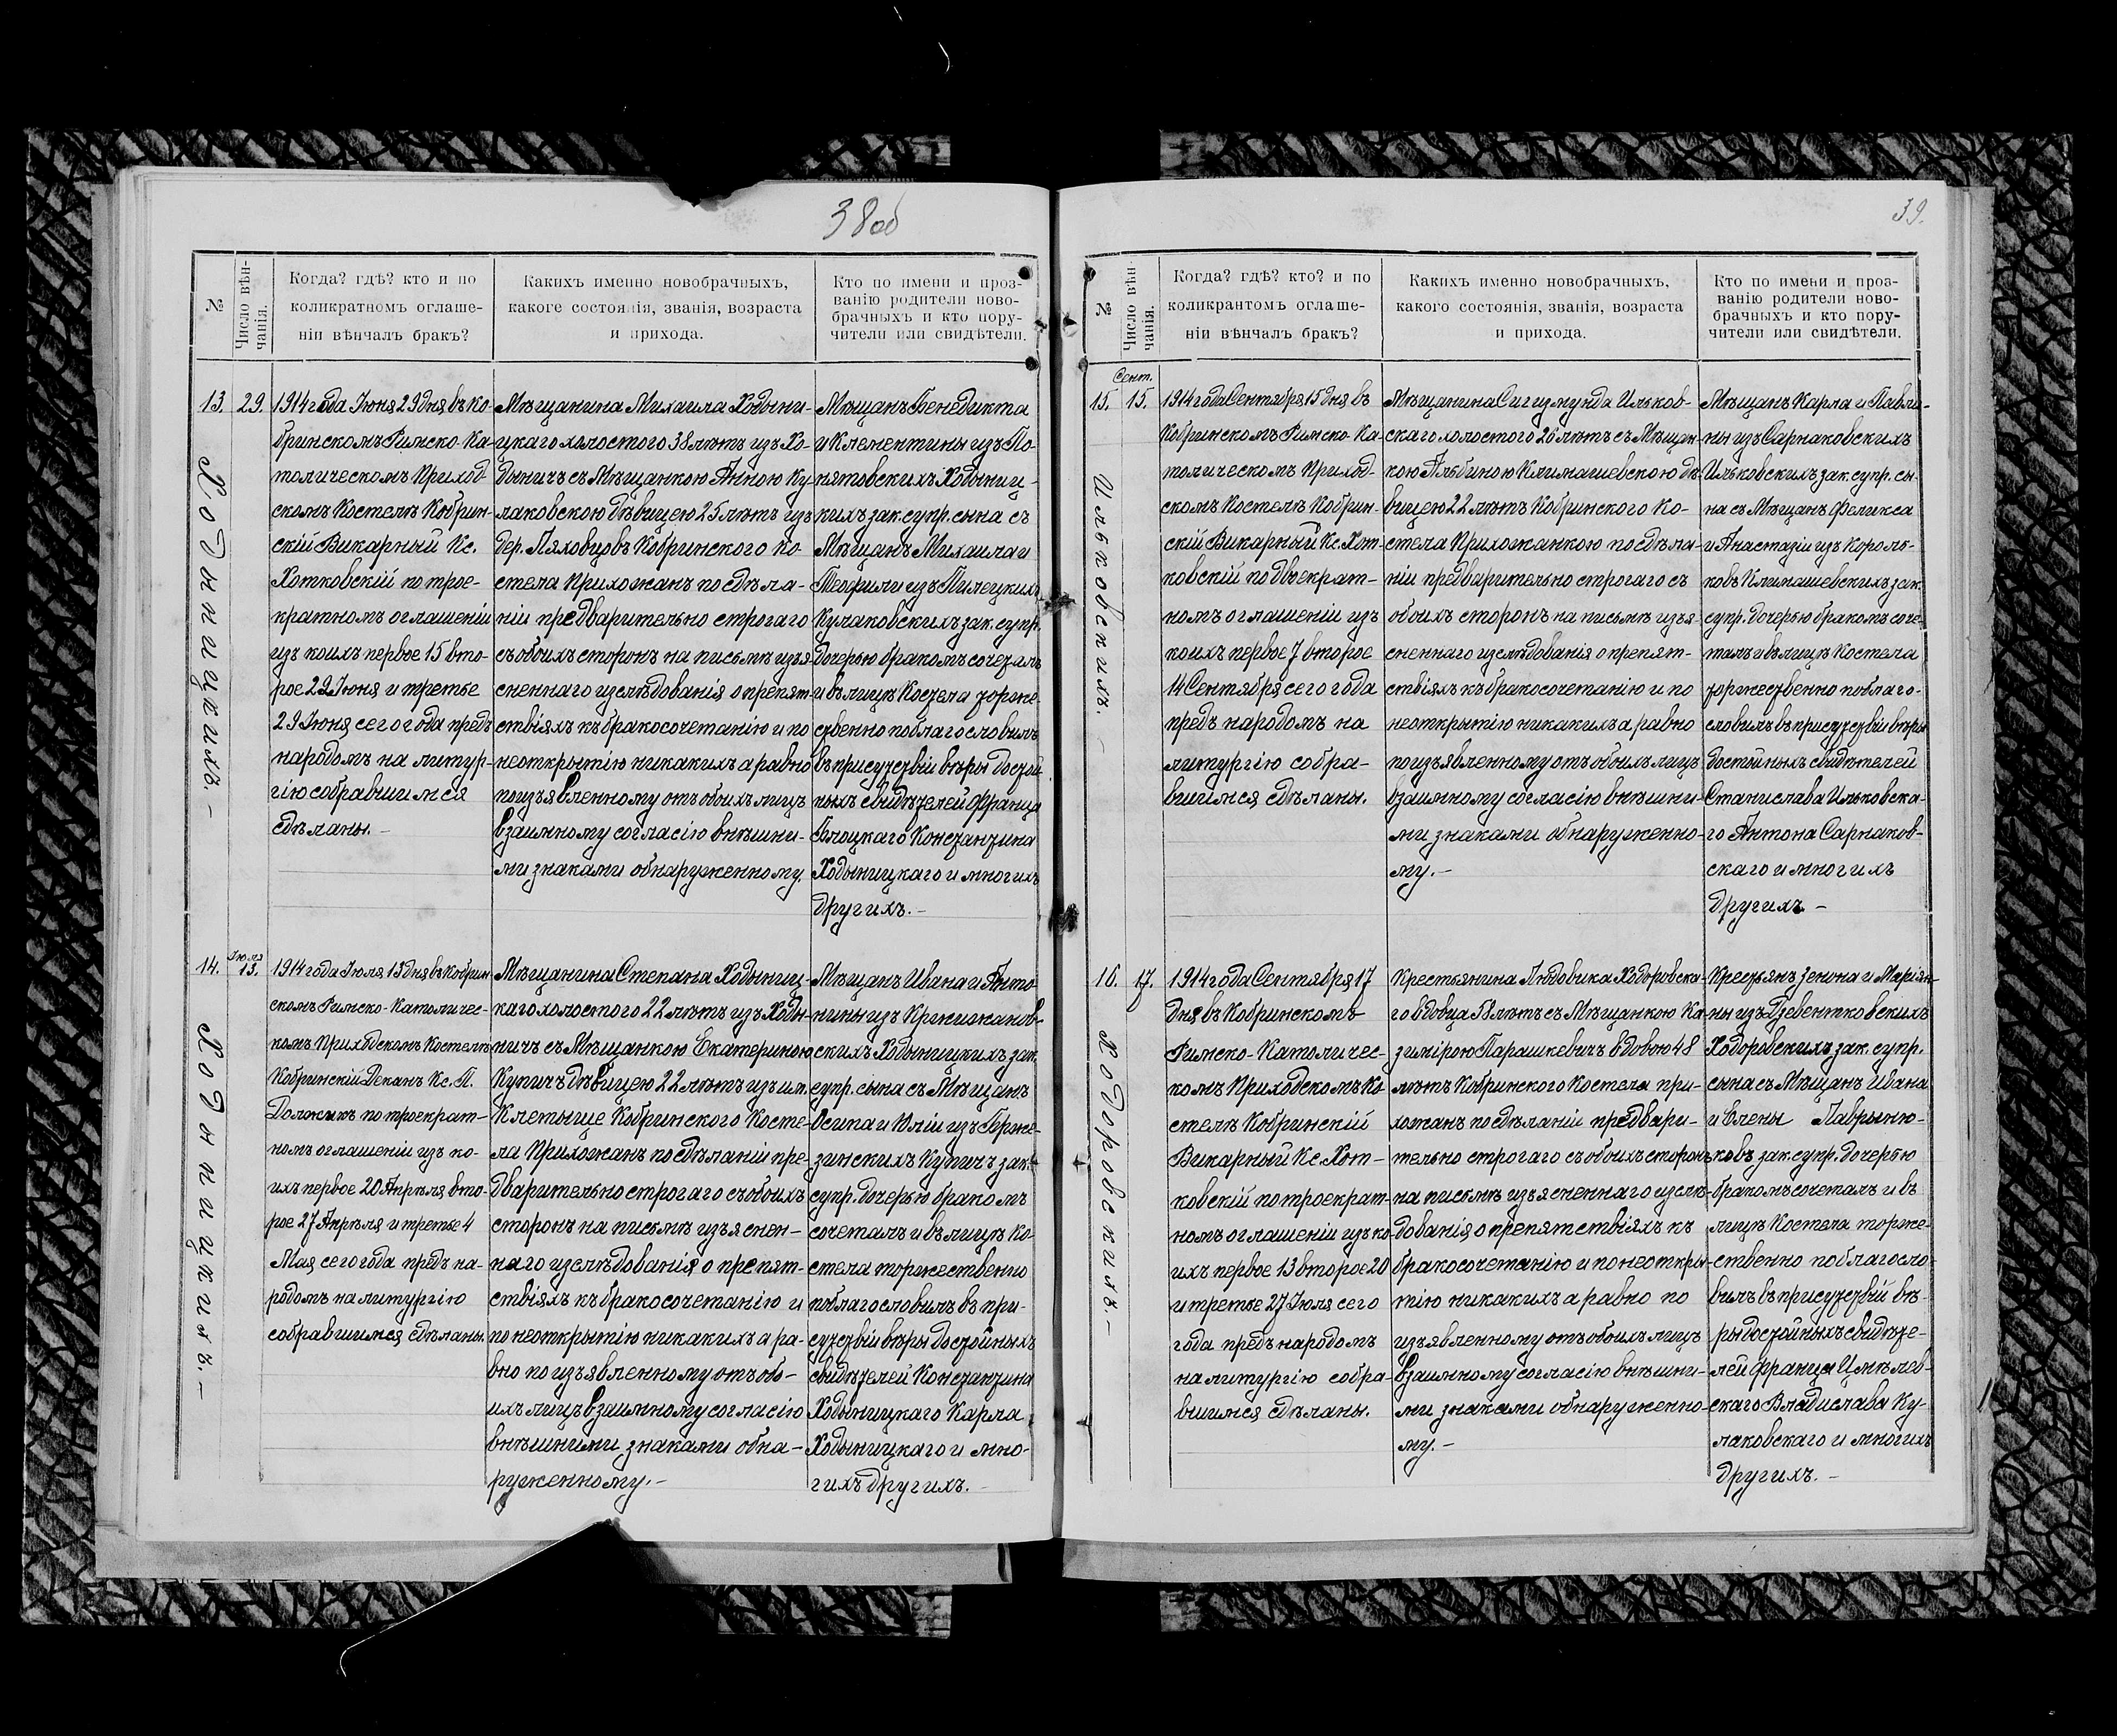 38об
№
Число вѣн-
чанія.
Когда? гдѣ? кто и по
коликратномъ оглаше-
ніи вѣнчалъ бракъ?
Какихъ именно новобрачныхъ,
какоге состоянія, званія, возраста
и прихода.
Кто по имени и проз-
ванію родители ново-
брачныхъ и кто пору-
чители или свидѣтели.
13.
29.
Ходыницкихъ.-
1914 года Іюня 29 дня въ Ко-
бринскомъ Римско-Ка-
толическомъ Приход-
скомъ Костелѣ Кобрин-
скій Викарный Кс.
Хотковскій по трое-
кратномъ оглашеніи
изъ коихъ первое 15 вто-
рое 22 Іюня и третье
29 Іюня сего года предъ
народомъ на литур-
гію собравшимся
сдѣланы.-
Мѣщанина Михаила Ходыни-
цкаго холостого 38 лѣтъ изъ Хо-
дыничъ съ Мѣщанкою Анною Ку-
лаковскою дѣвицею 25 лѣтъ изъ
дер. Ляховцовъ Кобринского Ко-
стела Прихожанъ по сдѣла-
ніи предварительно строгаго
съ обоихъ сторонъ на письмѣ изъя-
сненнаго изслѣдованія о препят-
ствіяхъ къ бракосочетанію и по
неоткрытію никакихъ а равно
по изъявленному отъ обоихъ лицъ
взаимному согласію внѣшни-
ми знаками обнаруженному.
Мѣщанъ Бенедикта
и Клементины изъ По-
нятовскихъ Ходыниц-
кихъ зак. супр. сына съ
Мѣщанъ Михаила и
Теофили изъ Пилецкихъ
Кулаковскихъ зак. супр.
дочерью бракомъ сочеталъ
и въ лицѣ Костела торже-
ственно поблагословилъ
въ присутствіи вѣры достой-
ныхъ свидѣтелей Франца
Блоцкаго Константина
Ходыницкаго и многихъ
другихъ.-
14.
Іюля
13.
Ходыницкихъ.-
1914 года Іюля 13 дня въ Кобрин-
скомъ Римско-Католичес-
комъ Приходскомъ Костелѣ
Кобринскій Деканъ Кс. П.
по троекрат-
номъ оглашеніи изъ ко-
ихъ первое 20 Апрѣля вто-
рое 27 Апрѣля и третье 4
Мая сего года предъ на-
родомъ на литургію
собравшимся сдѣланы.
Мѣщанина Степана Ходыниц-
каго холостого 22 лѣтъ изъ Ходы-
ничъ съ Мѣщанкою Екатериною
Купичъ дѣвицею 22 лѣтъ изъ им.
Клетыще Кобринского Косте-
ла Прихожанъ по сдѣланіи пре-
дварительно строгаго съ обоихъ
сторонъ на письмѣ изъяснен-
наго изслѣдованія о препят-
ствіяхъ къ бракосочетанію и
по неоткрытію никакихъ а ра-
вно по изъявленному отъ обо-
ихъ лицъ взаимному согласію
внѣшними знаками обна-
руженному.-
Мѣщанъ Ивана и Анто-
нины изъ Кржижанов-
скихъ Ходыницкихъ зак.
супр. сына съ Мѣщанъ
Осипа и Юліи изъ Берже-
зинскихъ Купичъ зак.
супр. дочерью бракомъ
сочеталъ и въ лицѣ Ко-
стела торжественно
поблагословилъ въ при-
сутствіи вѣры достойныхъ
свидѣтелей Константина
Ходыницкаго Карла
Ходыницкаго и мно-
гихъ другихъ.
39.
№
Число вѣн-
чанія.
Когда? гдѣ? кто? и по
коликрантомъ оглаше-
ніи вѣнчалъ бракъ?
Какихъ именно новобрачныхъ,
какого состоянія, званія, возраста
и прихода.
Кто по имени и проз-
ванію родители ново-
брачныхъ и кто пору-
чители или свидѣтели.
15.
Сент.
15.
Ильковскихъ.-
1914 года Сентября 15 дня въ
Кобринскомъ Римско-Ка-
толическомъ Приход-
скомъ Костелѣ Кобрин-
скій Викарный Кс. Хот-
ковскій по двоекрат-
номъ оглашеніи изъ
коихъ первое 7 второе
14 Сентября сего года
предъ народомъ на
литургію собра-
вшимся сдѣланы.
Мѣщанина Сигизмунда Ильков-
скаго холостого 26 лѣтъ съ Мѣщан-
кою Альбиною Климашевскою дѣ-
вицею 22 лѣтъ Кобринского Ко-
стела Прихожанкою по сдѣла-
ніи предварительно строгаго съ
обоихъ сторонъ на письмѣ изъя-
сненнаго изслѣдованія о препят-
ствіяхъ къ бракосочетанію и по
неоткрытію никакихъ а равно
по изъявленному отъ обоихъ лицъ
взаимному согласію внѣшни-
ми знаками обнаруженно-
му.-
Мѣщанъ Карла и Павли-
ны изъ Сарнаковскихъ
Ильковскихъ зак. супр. сы-
на съ Мѣщанъ Феликса
и Анастазіи изъ Король-
ковъ Климашевскихъ зак.
супр. дочерью бракомъ соче-
талъ и въ лицѣ Костела
торжественно поблаго-
словилъ въ присутствіи вѣры
достойныхъ свидѣтелей
Станислава Ильковска-
го Антона Сарнаков-
скаго и многихъ
другихъ-
16.
17.
Ходоровскихъ-
1914 года Сентября 17
дня въ Кобринскомъ
Римско-Католичес-
комъ Приходскомъ Ко-
стелѣ Кобринскій
Викарный Кс. Хот-
ковскій по троекрат-
номъ оглашеніи изъ ко-
ихъ первое 13 второе 20
и третье 27 Іюля сего
года предъ народомъ
на литургію собра-
вшимся сдѣланы.
Крестьянина Людовика Ходоровска-
го вдовца 58 лѣтъ съ Мѣщанкою Ка-
зимірою Парашкевичъ вдовою 48
лѣтъ Кобринского Костела при-
хожанъ по сдѣланіи предвари-
тельно строгаго съ обоихъ сторонъ
на письмѣ изъясненнаго изслѣ-
дованія о препятствіяхъ къ
бракосочетанію и по неоткры-
тію никакихъ а равно по
изъявленному отъ обоихъ лицъ
взаимному согласію внѣшни-
ми знаками обнаруженно-
му.-
Крестьянъ Зенона и Маріян-
ны изъ Дзевентковскихъ
Ходоровскихъ зак. супр.
сына съ Мѣщанъ Ивана
и Елены Лаврыню-
ковъ зак. супр. дочерью
бракомъ сочеталъ и въ
лицѣ Костела торже-
ственно поблагосло-
вилъ въ присутствіи вѣ-
ры достойныхъ свидѣте-
лей Франца Цмѣлев-
скаго Владислава Ку-
лаковскаго и многихъ
другихъ.-